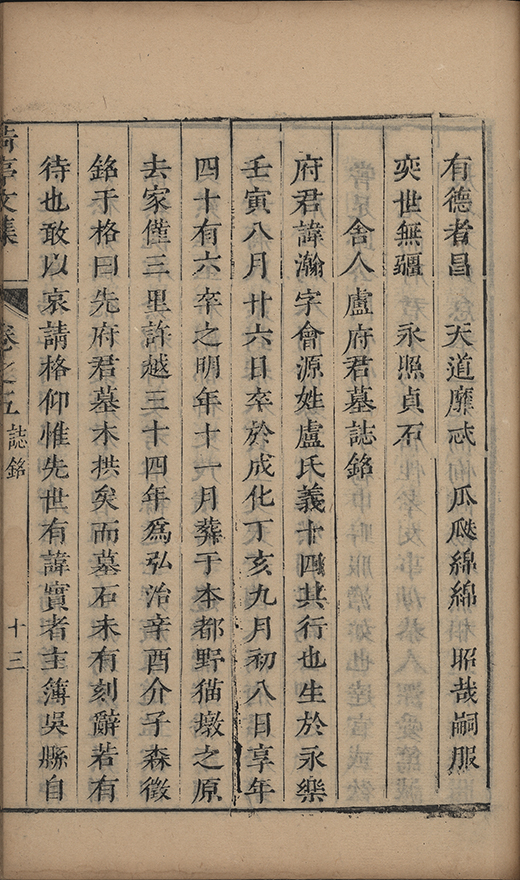 有德者昌　天道靡忒　瓜瓞綿綿　昭哉嗣服
奕世無疆　永照貞石
舍人盧府君墓誌銘
府君諱瀚字會源姓盧氏義十四其行也生於永樂
壬寅八月廿六日卒於成化丁亥九月初八日享年
四十有六卒之明年十一月葬于本都野猫墩之原
去家僅三里許越三十四年爲弘治辛酉介子森徵
銘于格曰先府君墓木拱矣而墓石未有刻辭若有
待也敢以哀請格仰惟先世有諱實者主簿吳縣自
文集
卷之五　誌銘　十三